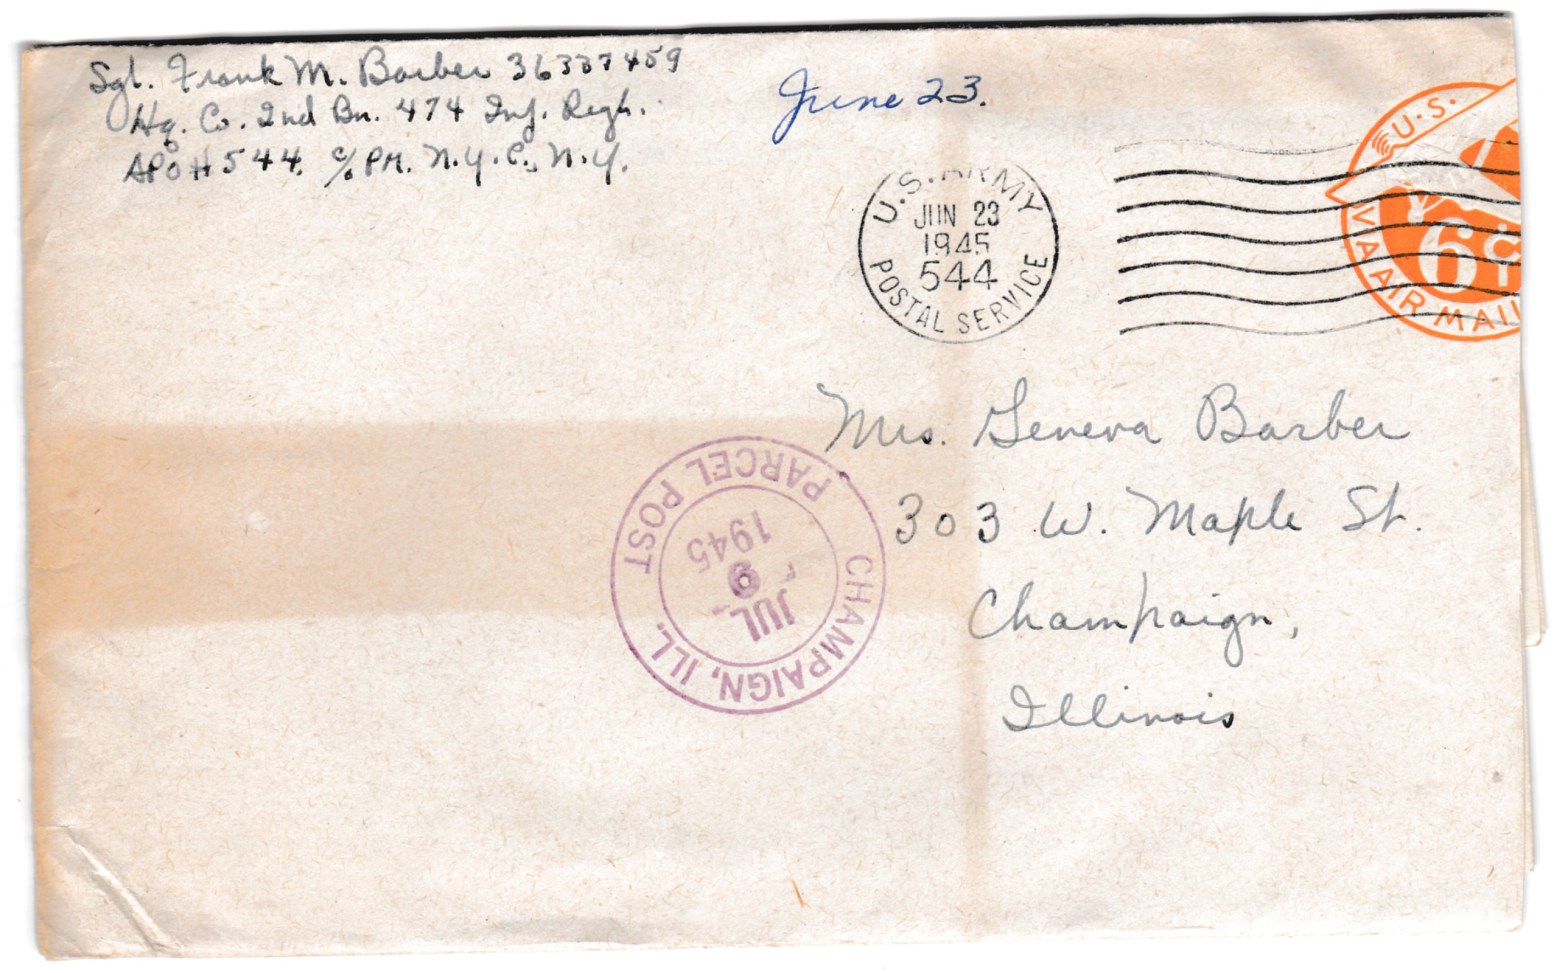 Sgt. Frank M. Barber 36337459
Hq. Co. 2nd Bn. 474 Inf. Regt.
APO # 544, c/o PM. N.Y.C., N.Y.
June 23.
U.S. ARMY
JUN 23
1945
544
POSTAL SERVICE
U.S.
6¢
VIA AIR MAIL
Mrs. Geneva Barber
303 W. Maple St.
Champaign,
Illinois
CHAMPAIGN, ILL.
JUL 9
1945
PARCEL POST